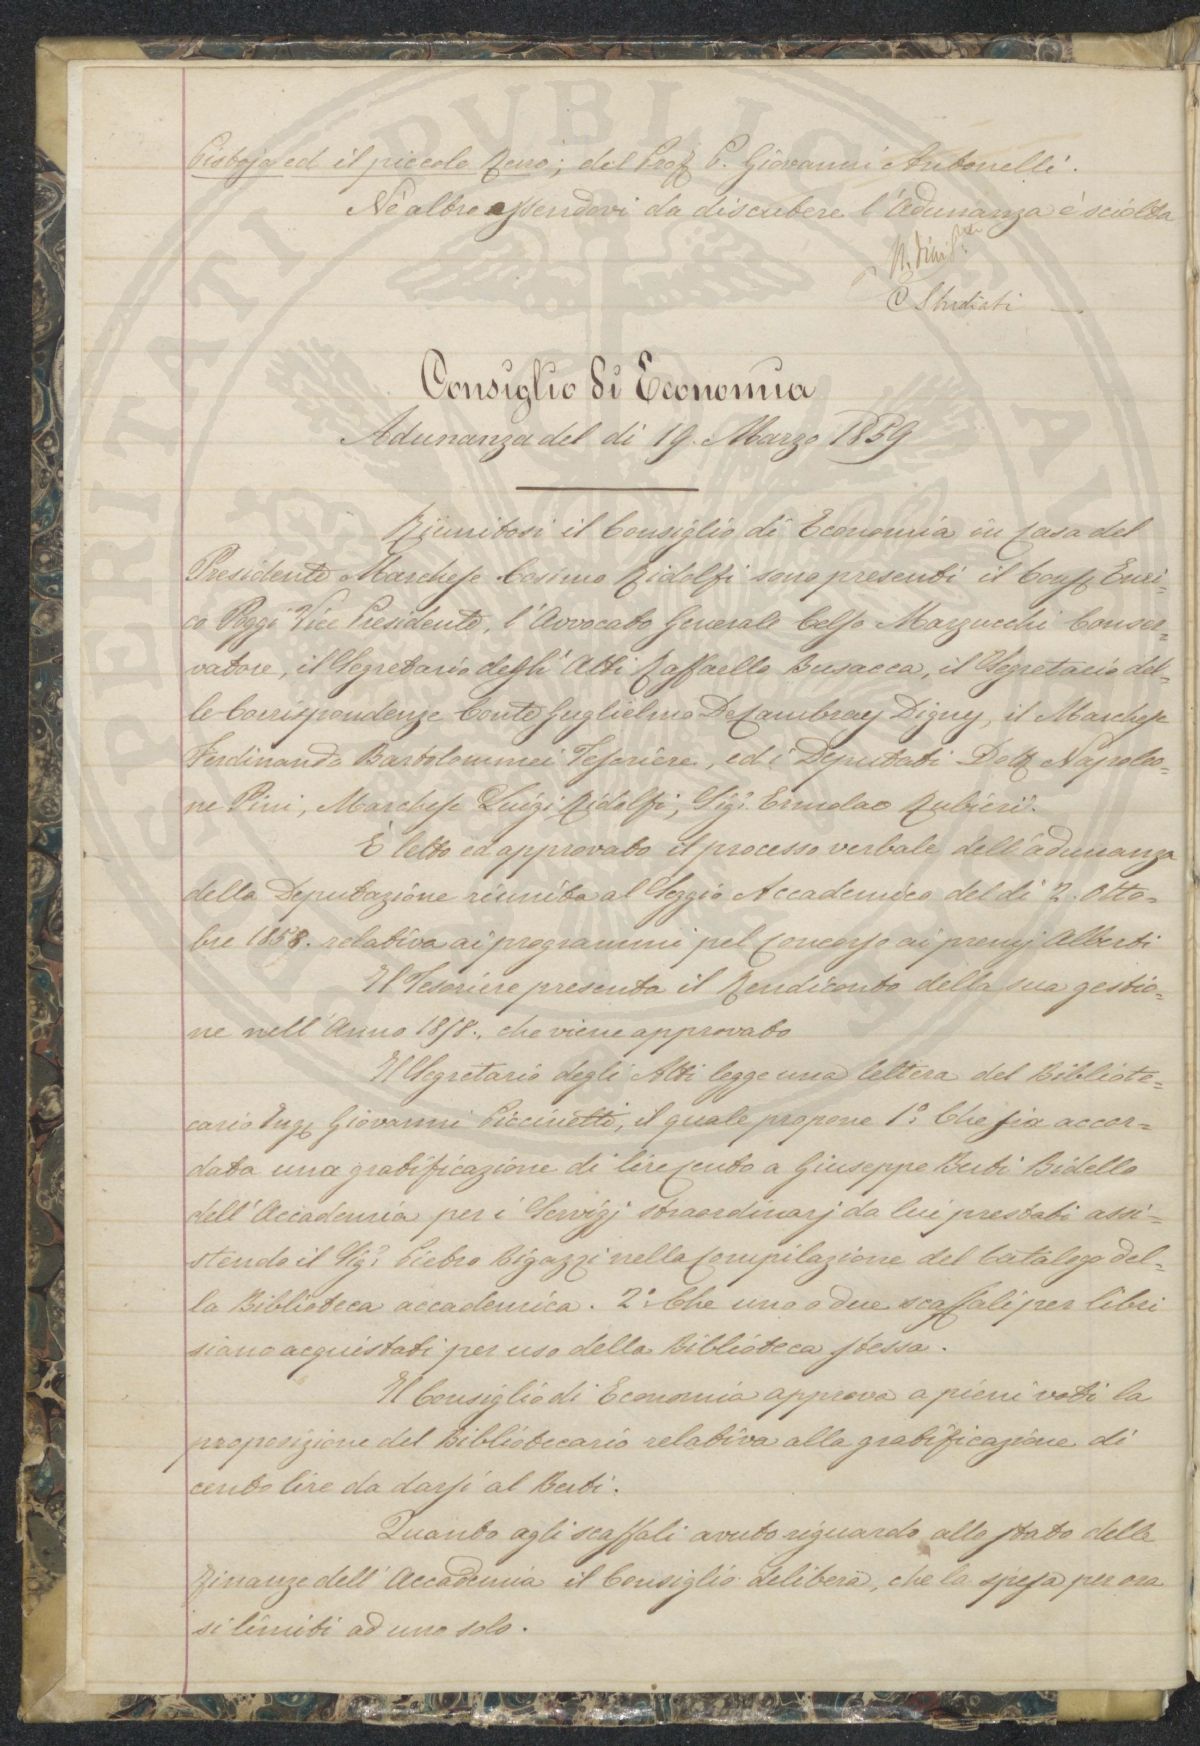 Pistoja ed il piccolo Reno; del Prof. P. Giovanni Antonelli.
Nè altro essendovi da discutere l'Adunanza è sciolta
C Studiati
Consiglio di Economia
Adunanza del dì 19. Marzo 1859
Riunitosi il Consiglio di Economia in casa del
Presidente Marchese Cosimo Ridolfi sono presenti il Conss. Enri=
co Poggi Vice Presidente, l'Avvocato Generale Celso Marzucchi Conser=
vatore, il Segretario degli Atti Raffaello Busacca, il Segretario del=
le Corrispondenze Conte Guglielmo De Cambray Digny, il Marchese
Ferdinando Bartolommei Tesoriere, ed i Deputati Dott. Napoleo=
ne Pini, Marchese Luigi Ridolfi, Sigr. Ermolao Rubieri.
È letto ed approvato il processo verbale dell'adunanza
della Deputazione riunita al Seggio Accademico del dì 2. Otto=
bre 1858. relativa ai programmi pel concorso ai premj Alberti
Il Tesoriere presenta il Rendiconto della sua gestio=
ne nell'Anno 1858., che viene approvato
Il Segretario degli Atti legge una lettera del Bibliote=
cario Ing. Giovanni Piccinetti, il quale propone 1.° Che sia accor=
data una gratificazione di lire cento a Giuseppe Berti Bidello
dell'Accademia per i Servizj straordinarj da lui prestati assi=
stendo il Sigr. Pietro Bigazzi nella compilazione del Catalogo del=
la Biblioteca accademica. 2.° Che uno o due scaffali per libri
siano acquistati per uso della Biblioteca stessa.
Il Consiglio di Economia approva a pieni voti la
proposizione del Bibliotecario relativa alla gratificazione di
cento lire da darsi al Berti.
Quanto agli scaffali avuto riguardo allo stato delle
Finanze dell'Accademia il Consiglio delibera, che la spesa per ora
si limiti ad uno solo.